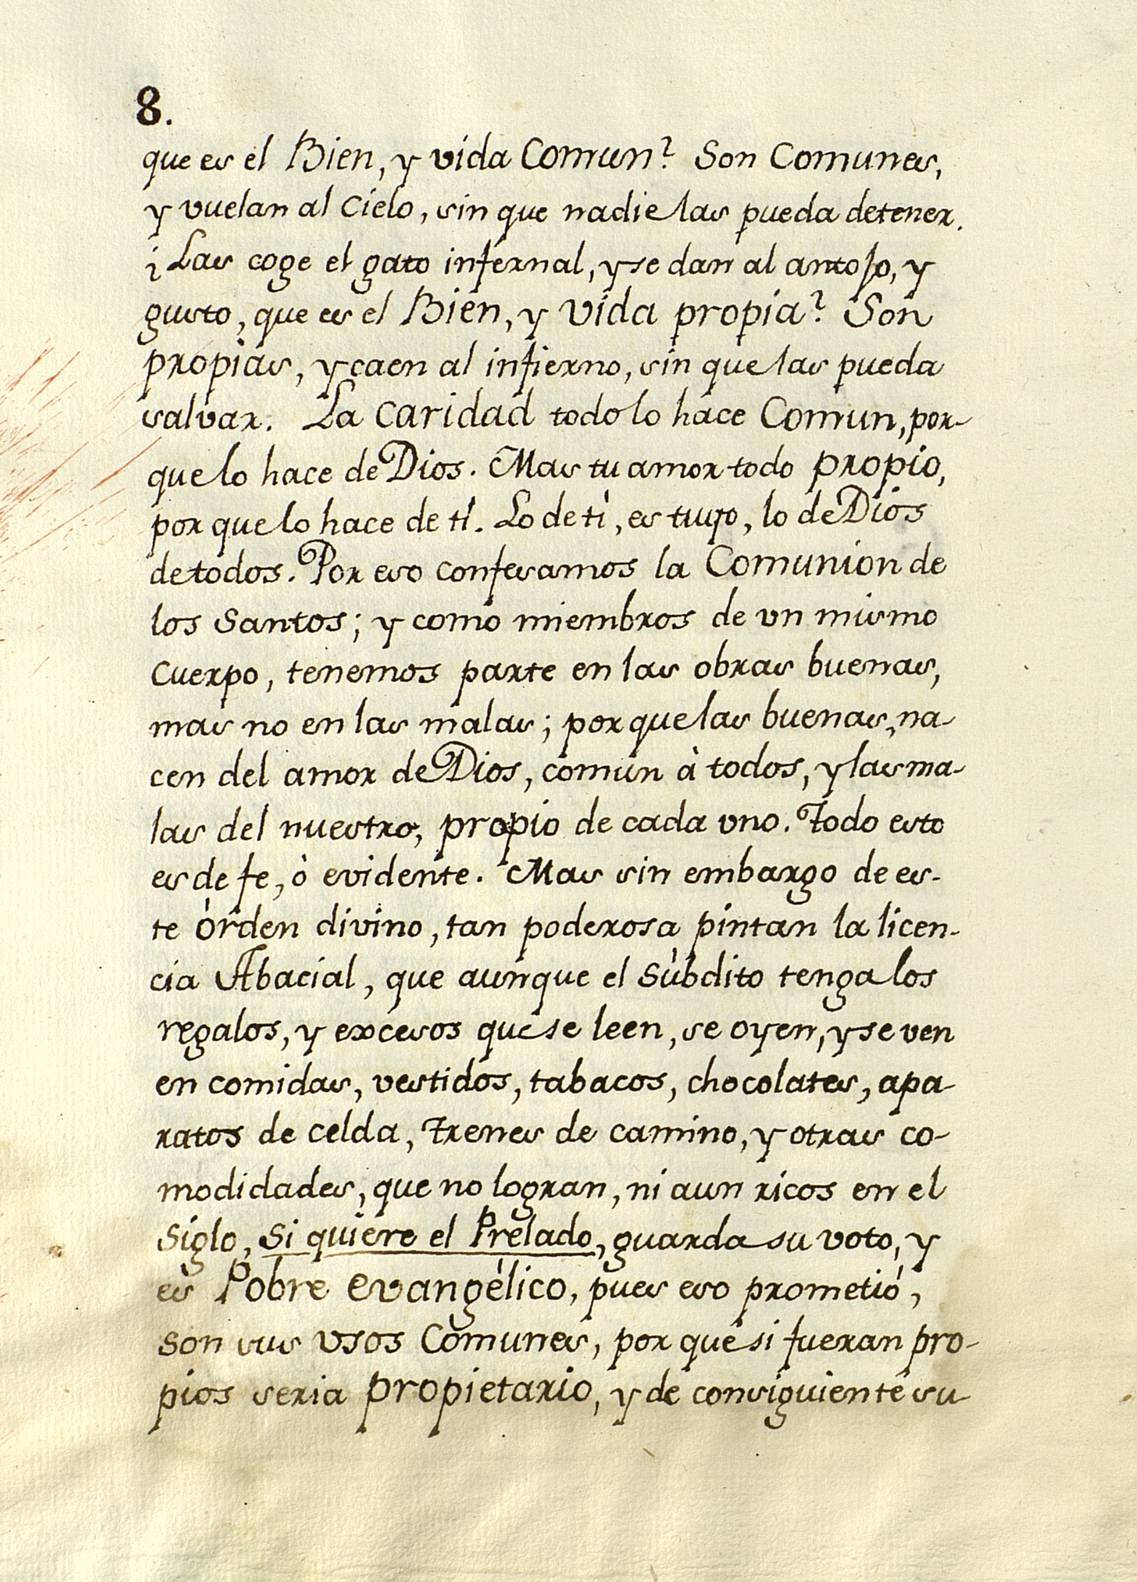 8.
que es el Bien, y vida Comun? Son Comunes,
y vuelan al Cielo, sin que nadie las pueda detener.
¿Las coge el gato infernal, y se dan al antojo, y
gusto, que es el Bien, y vida propia? Son
propias, y caen al infierno, sin que las pueda
salvar. La Caridad todo lo hace Comun, por-
que lo hace de Dios. Mas tu amor todo propio,
por que lo hace de tí. Lo de tì, es tuyo, lo de Dios
de todos. Por eso confesamos la Comunion de
los Santos; y como miembros de vn mismo
Cuerpo, tenemos parte en las obras buenas,
mas no en las malas; por que las buenas, na-
cen del amor de Dios, comun à todos, y las ma-
las del nuestro, propio de cada vno. Todo esto
es de fe, ò evidente. Mas sin embargo de es-
te òrden divino, tan poderosa pintan la licen-
cia Abacial, que aunque el Sùbdito tenga los
regalos, y excesos que se leen, se oyen, y se ven
en comidas, vestidos, tabacos, chocolates, apa-
ratos de celda, trenes de camino, y otras co-
modidades, que no logran, ni aun ricos en el
Siglo, Si quiere el Prelado, guarda su voto, y
es Pobre evangélico, pues eso prometió,
son sus vsos Comunes, por que si fueran pro-
pios seria propietario, y de consiguiente su